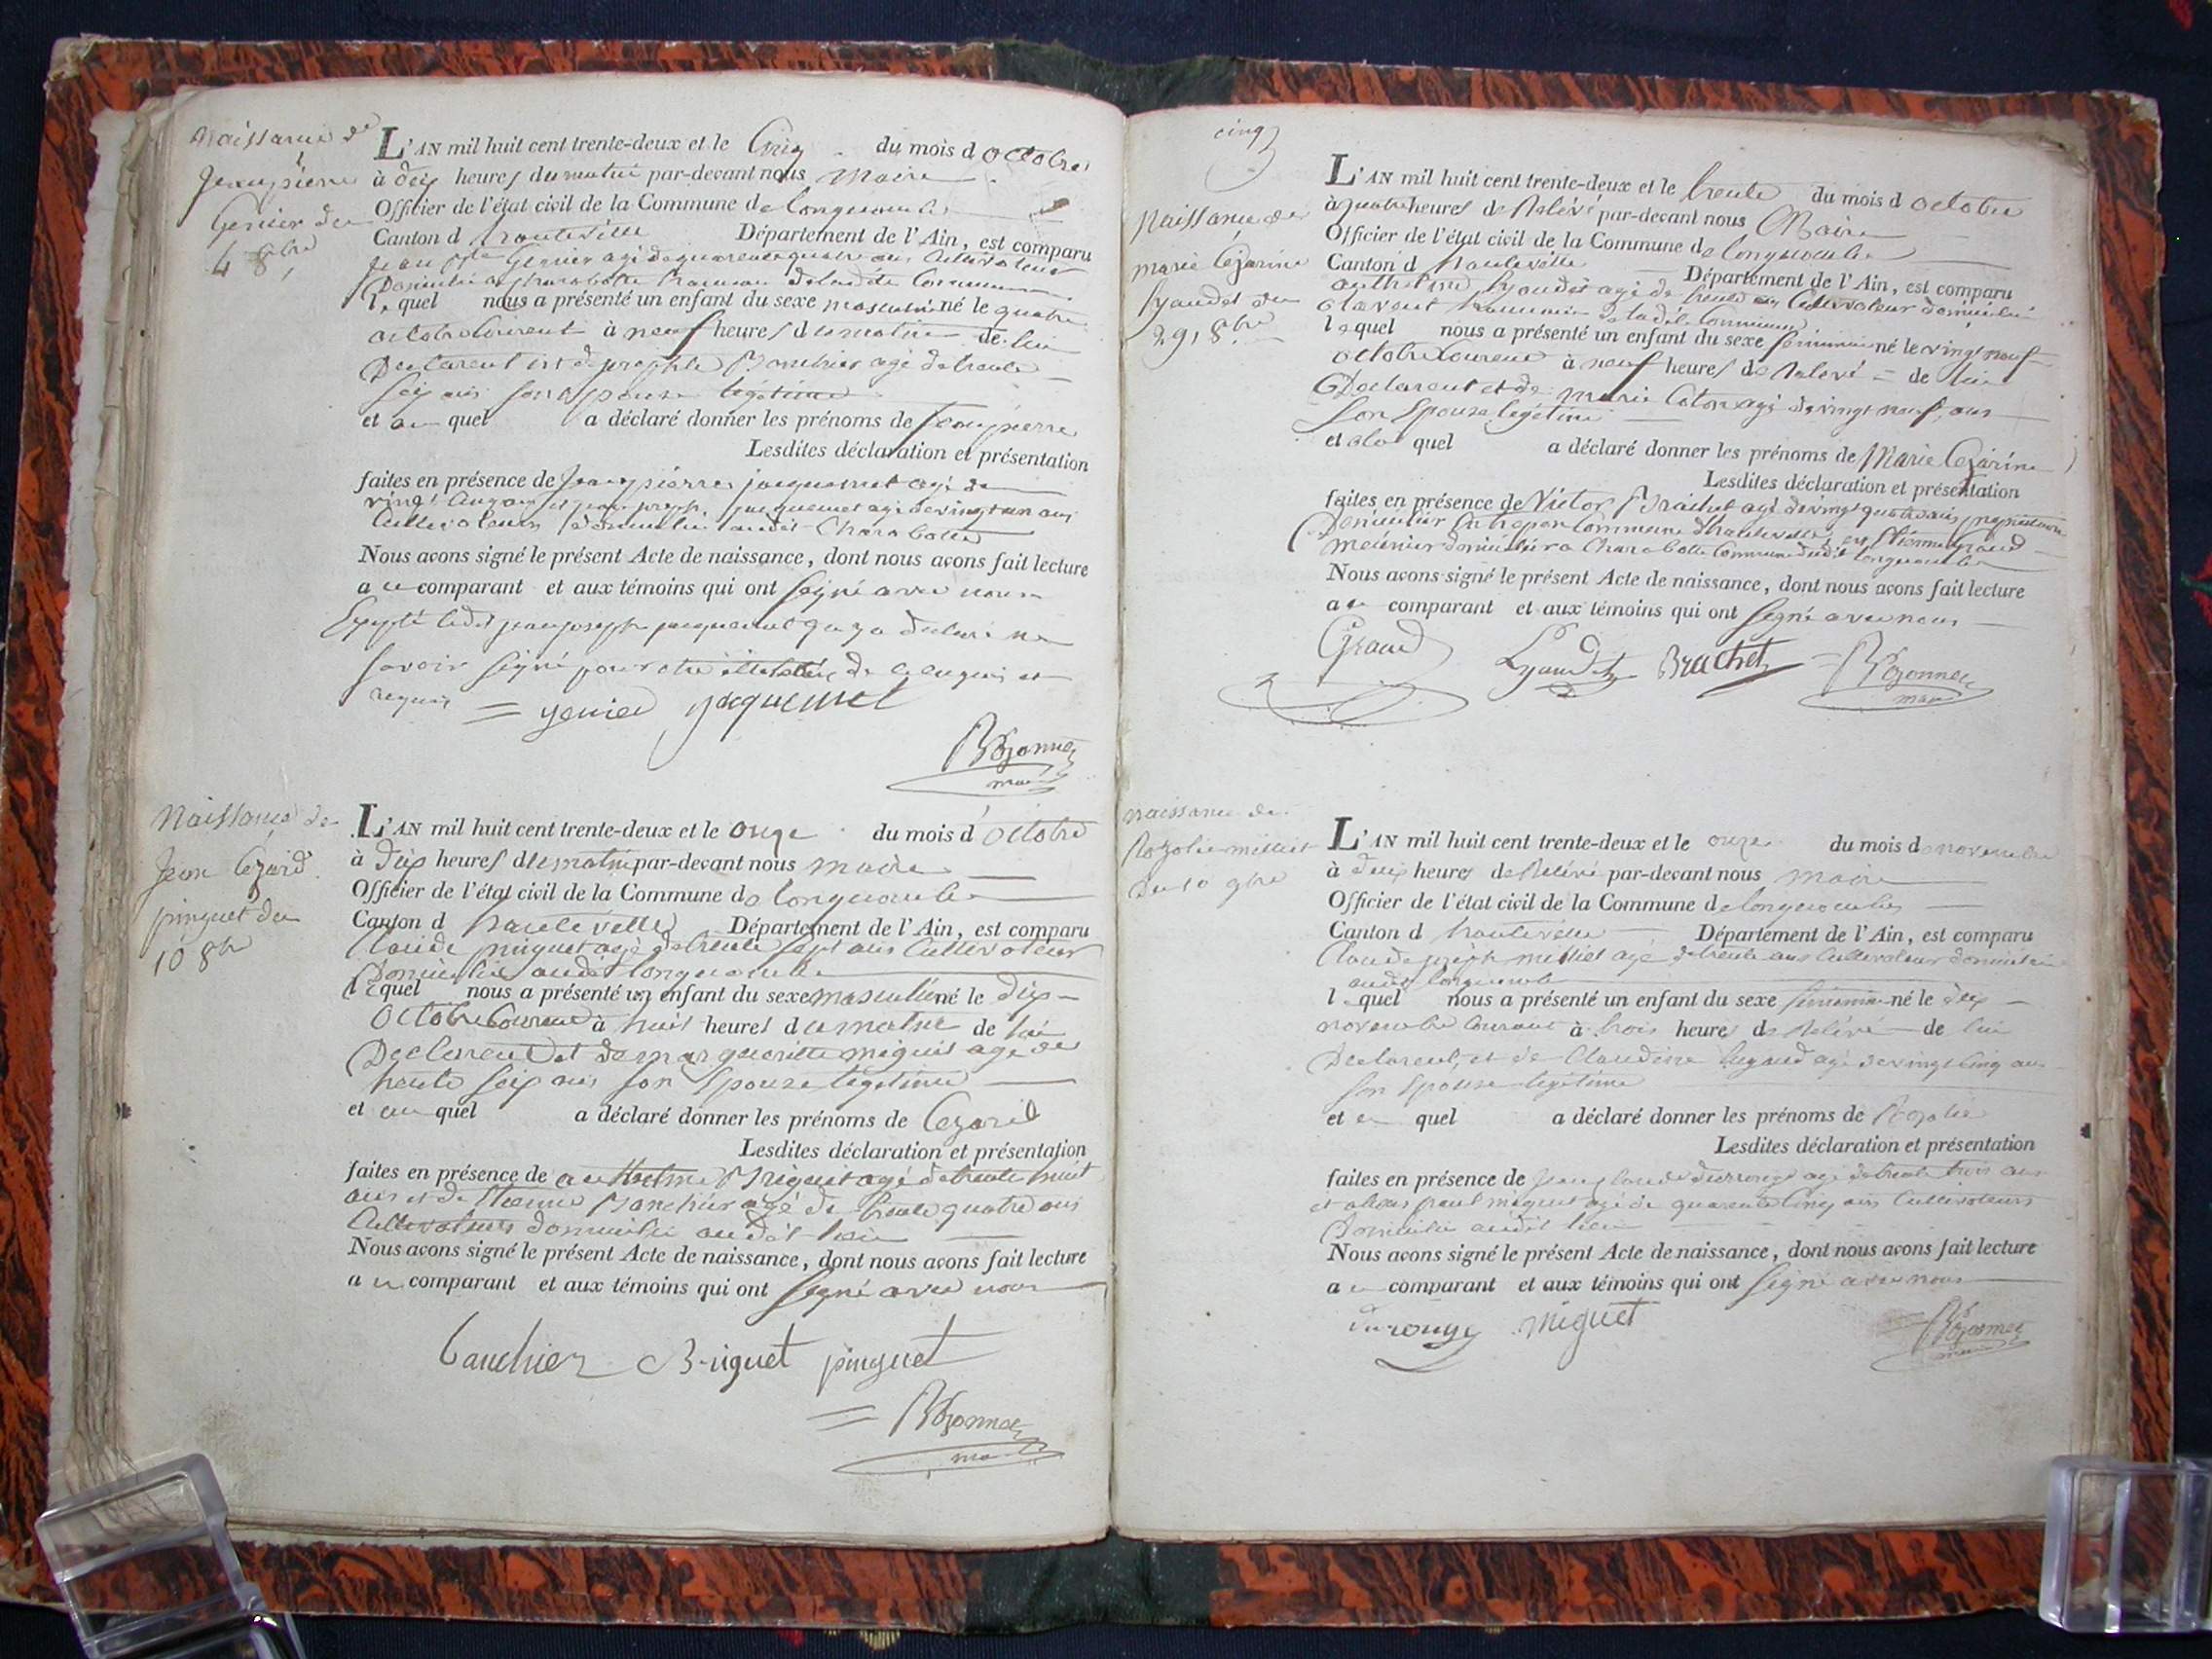 Naissance de
Jean pierre
Genier du
4 8bre
L'AN mil huit cent trente-deux et le Cinq du mois d octobre
à dix heures du matin par-devant nous Maire
Officier de l'état civil de la Commune de longecombe
Canton d hauteville Département de l'Ain, est comparu
Jean Genier agé de quarente quatre ans Cultivateur
Domicilié a Charabotte hameau de ladite Commune
lequel nous a présenté un enfant du sexe masculin né le quatre
octobre Courent à neuf heures du matin de lui
Declarent et de josephte agé de trente
Six ans son Epouse legitime
et au quel a déclaré donner les prénoms de Jean pierre
Lesdites déclaration et présentation
faites en présence de Jean pierre jacquemet agé de
vingt ans et jean joseph jacquemet agé de vingt un ans
Cultivateurs domicilié audit Charabotte
Nous avons signé le présent Acte de naissance, dont nous avons fait lecture
au comparant et aux témoins qui ont Signé avec nous
Excepté ledit jean joseph jacquemet qui a declaré ne
savoir signé pour etre illettré de ce enquis et
requis = genier jacquemet
Rozonnet
maire
Naissance de
Jean Cezard
pinguet du
10 8bre
L'AN mil huit cent trente-deux et le onze du mois d'octobre
à dix heures du matin par-devant nous maire
Officier de l'état civil de la Commune de longecombe
Canton d hauteville Département de l'Ain, est comparu
Claude pinguet agé de trente sept ans Cultivateur
Domicilié audit longecombe
lequel nous a présenté un enfant du sexe masculin né le dix
Octobre Courent à huit heures du matin de lui
Declarent et de margueritte miguet agé de
trente six ans son Epouse legitime
et au quel a déclaré donner les prénoms de Cezard
Lesdites déclaration et présentation
faites en présence de anthelme Briguet agé de trente huit
ans et de Etienne Banchier agé de trente quatre ans
Cultivateurs domicilié audit lieu
Nous avons signé le présent Acte de naissance, dont nous avons fait lecture
au comparant et aux témoins qui ont Signé avec nous
Bauchier Briguet pinguet
= Rozonnet
maire
cinq
Naissance de
marie Cezarine
Lyaudet du
29, 8bre
L'AN mil huit cent trente-deux et le trente du mois d octobre
à quatre heures de Relevé par-devant nous Maire
Officier de l'état civil de la Commune de longecombe
Canton d hauteville Département de l'Ain, est comparu
anthelme Lyaudet agé de trente ans Cultivateur domicilié
hameau de ladite Commune
lequel nous a présenté un enfant du sexe feminin né le vingt neuf
octobre Courent à neuf heures de Relevé = de lui
Declarent et de marie Coton agé de vingt neuf ans
son Epouse legitime
et a la quel a déclaré donner les prénoms de Marie Cezarine
Lesdites déclaration et présentation
faites en présence de Victor Brachet agé de vingt quatre ans propriétaire
Domicilié Commune d'hauteville, et Etienne Graud
meunier domicilié a Charabotte Commune dudit longecombe
Nous avons signé le présent Acte de naissance, dont nous avons fait lecture
au comparant et aux témoins qui ont Signé avec nous
Graud Lyaudet Brachet = Rozonnet
maire
Naissance de
Rozalie milliet
du 10 9bre
L'AN mil huit cent trente-deux et le onze du mois de novembre
à deux heures de Relevé par-devant nous maire
Officier de l'état civil de la Commune de longecombe
Canton d hauteville Département de l'Ain, est comparu
Claude joseph milliet agé de trente ans Cultivateur domicilié
audit longecombe
lequel nous a présenté un enfant du sexe feminin né le dix
novembre Courant à trois heures de Relevé de lui
Declarent, et de Claudine agé de vingt Cinq ans
son Epouse legitime
et a quel a déclaré donner les prénoms de Rozalie
Lesdites déclaration et présentation
faites en présence de jean Claude durrouge agé de trente trois ans
et paul miguet agé de quarente Cinq ans Cultivateurs
Domicilié audit lieu
Nous avons signé le présent Acte de naissance, dont nous avons fait lecture
au comparant et aux témoins qui ont Signé avec nous
durouge miguet = Rozonnet
maire